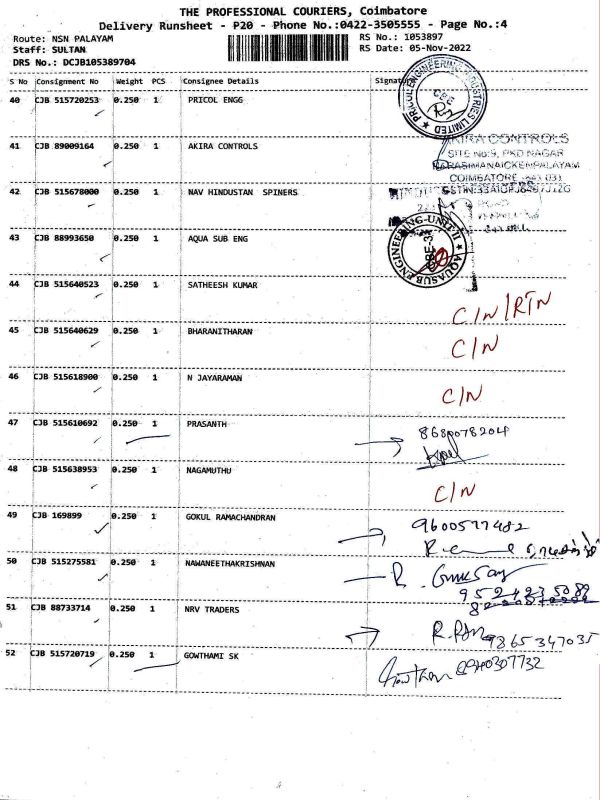 THE PROFESSIONAL COURIERS, Coimbatore
Delivery Runsheet - P20 - Phone No.:0422-3505555 - Page No.:4
Route: NSN PALAYAM
RS No.: 1053897
Staff: SULTAN
RS Date: 05-Nov-2022
DRS No.: DCJB105389704
S No Consignment No Weight PCS Consignee Details Signature
40 CJB 515720253 0.250 1 PRICOL ENGG
PRICOL ENGINEERING INDUSTRIES LIMITED
CBE
41 CJB 89009164 0.250 1 AKIRA CONTROLS
AKIRA CONTROLS
SITE No:9, PKD NAGAR
NARASIMANAICKENPALAYAM
COIMBATORE - 641 031
42 CJB 515678000 0.250 1 NAV HINDUSTAN SPINERS
43 CJB 88993650 0.250 1 AQUA SUB ENG
AQUASUB ENGINEERING-UNIT II
CBE-31
44 CJB 515640523 0.250 1 SATHEESH KUMAR
C/N/RTN
45 CJB 515640629 0.250 1 BHARANITHARAN
C/N
46 CJB 515618900 0.250 1 N JAYARAMAN
C/N
47 CJB 515610692 0.250 1 PRASANTH
8680078204
48 CJB 515638953 0.250 1 NAGAMUTHU
C/N
49 CJB 169899 0.250 1 GOKUL RAMACHANDRAN
9600577482
50 CJB 515275581 0.250 1 NAWANEETHAKRISHNAN
9524235089
51 CJB 88733714 0.250 1 NRV TRADERS
9865347035
52 CJB 515720719 0.250 1 GOWTHAMI SK
Gowtham